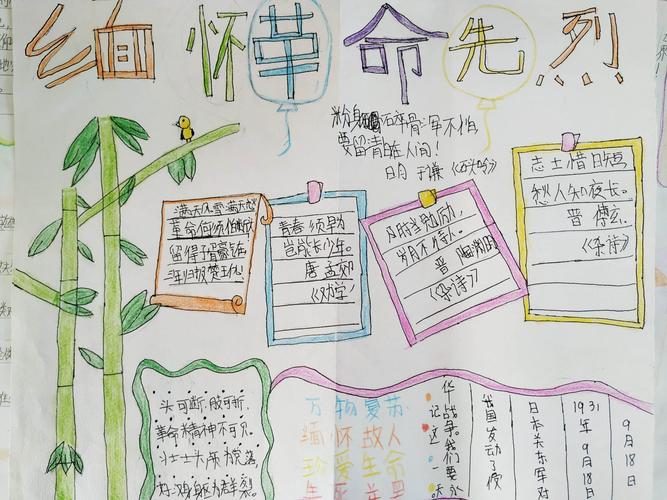 缅怀革命先烈
粉身碎骨浑不怕
要留清白在人间!
明 于谦《石灰吟》
满天风雪满天愁
革命何须怕断头
留得子胥豪气在
三年归报楚王仇!
青春须早为
岂能长少年。
唐 孟郊
《劝学》
及时当勉励,
岁月不待人。
晋 陶渊明
《杂诗》
志士惜日短
愁人知夜长。
晋 傅玄
《杂诗》
头可断,肢可折,
革命精神不可灭。
壮士头颅为党落,
好汉身躯为群裂。
万物复苏
缅怀故人
珍爱生命
9月18日
1931年9月18日
日本关东军对
我国发动了侵
华战争。我们要永
记这一天